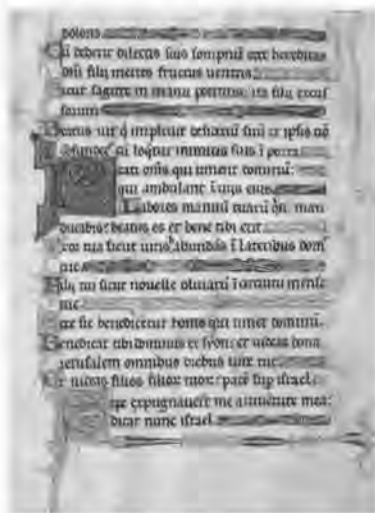 doloris
Cū dederit dilectis suis sompnū ecce hereditas
dñi filii merces fructus uentris
Sicut sagitte in manu potentis: ita filii excus
sorum
Beatus uir q̄ impleuit desideriū suū ex ipsis nō
cōfundet cū loqtur inimicis suis ī porta
Beati om̄s qui timent dominū:
qui ambulant ī uiis eius
Labores manuū tuarū qn̄ man
ducabis: beatus es et bene tibi erit
Uxor tua sicut uitis abundās ī lateribus dom
tue
Filii tui sicut nouelle oliuarū ī circuitu mense
tue
Ecce sic benedicetur homo qui timet dominū.
Benedicat tibi dominus ex syon: et uideas bona
ierusalem omnibus diebus uite tue
Et uideas filios filior tuor: pacē sup israel
Sepe expugnauerūt me a iuuentute mea:
dicat nunc israel